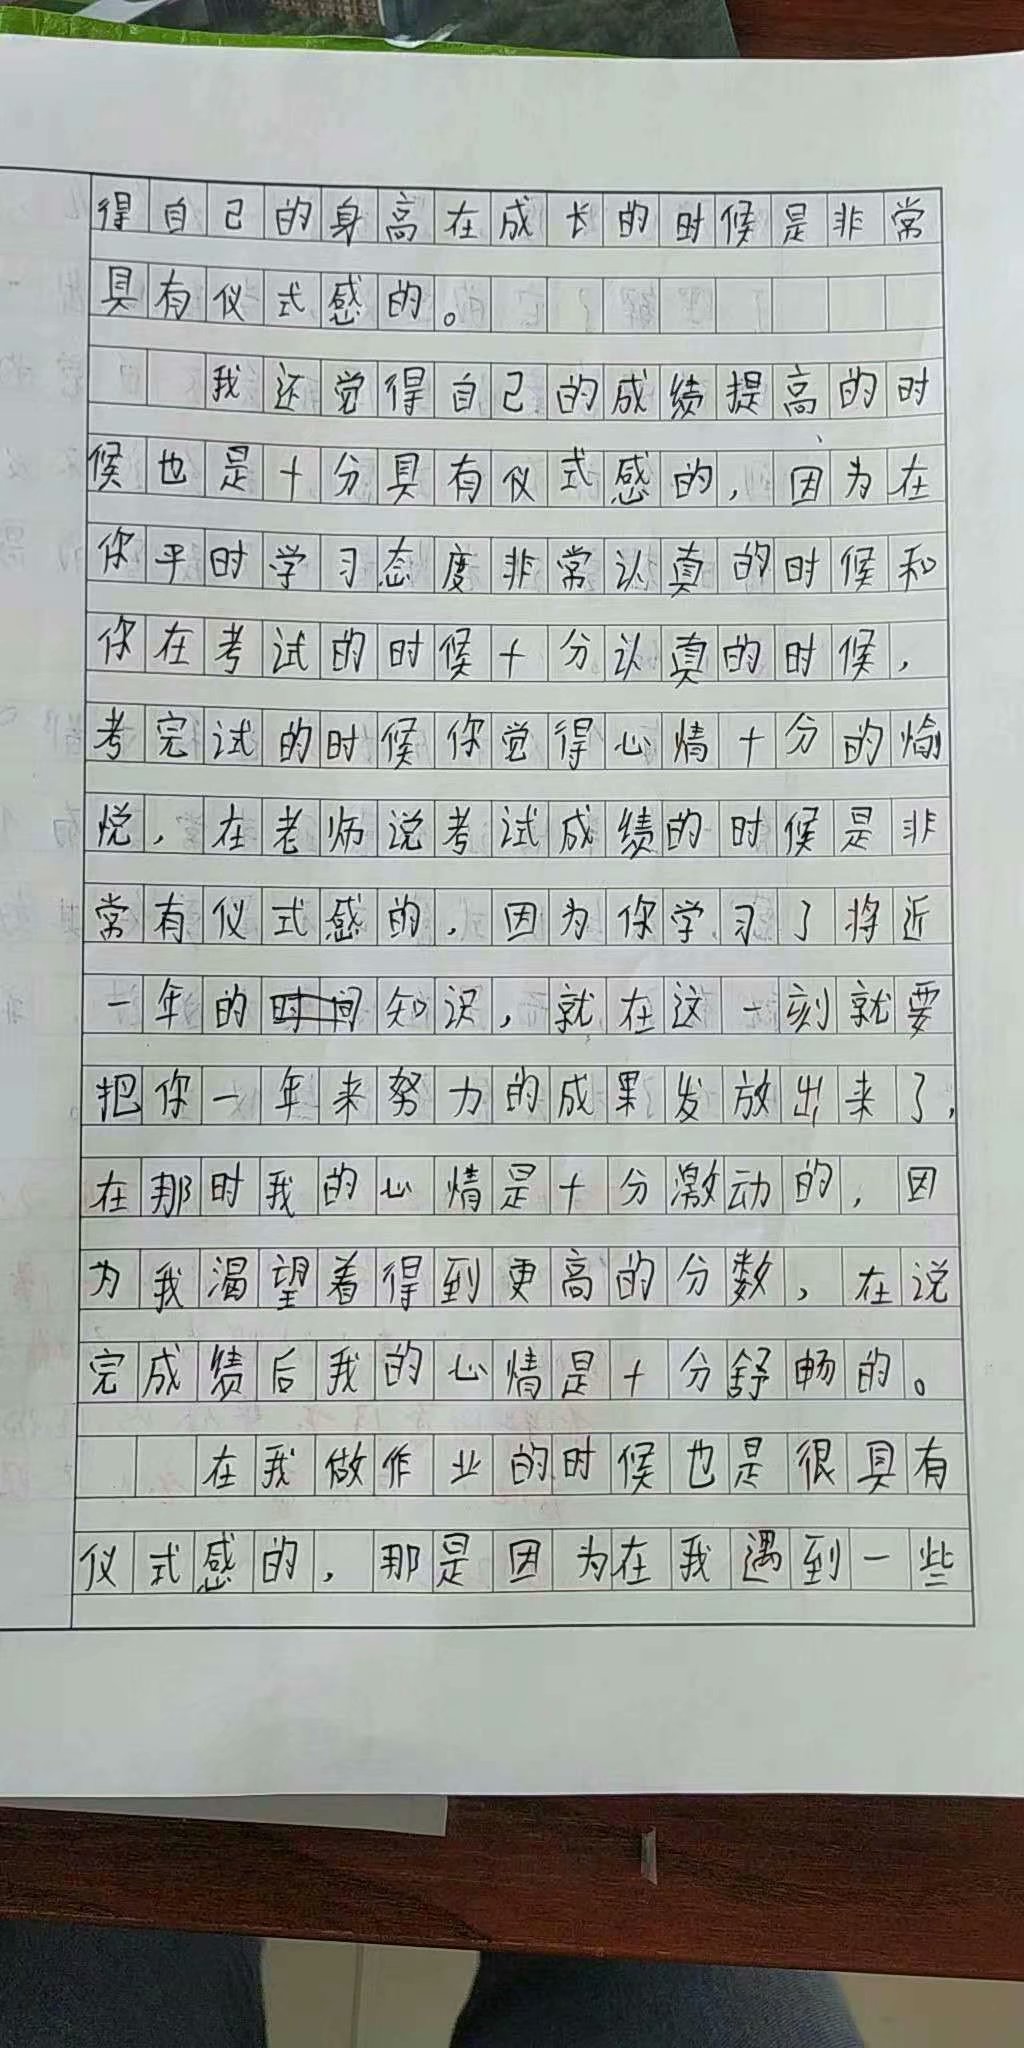 得自己的身高在成长的时候是非常
具有仪式感的。
我还觉得自己的成绩提高的时
候也是十分具有仪式感的，因为在
你平时学习态度非常认真的时候和
你在考试的时候十分认真的时候，
考完试的时候你觉得心情十分的愉
悦，在老师说考试成绩的时候是非
常有仪式感的，因为你学习了将近
一年的时间知识，就在这一刻就要
把你一年来努力的成果发放出来了，
在那时我的心情是十分激动的，因
为我渴望着得到更高的分数，在说
完成绩后我的心情是十分舒畅的。
在我做作业的时候也是很具有
仪式感的，那是因为在我遇到一些